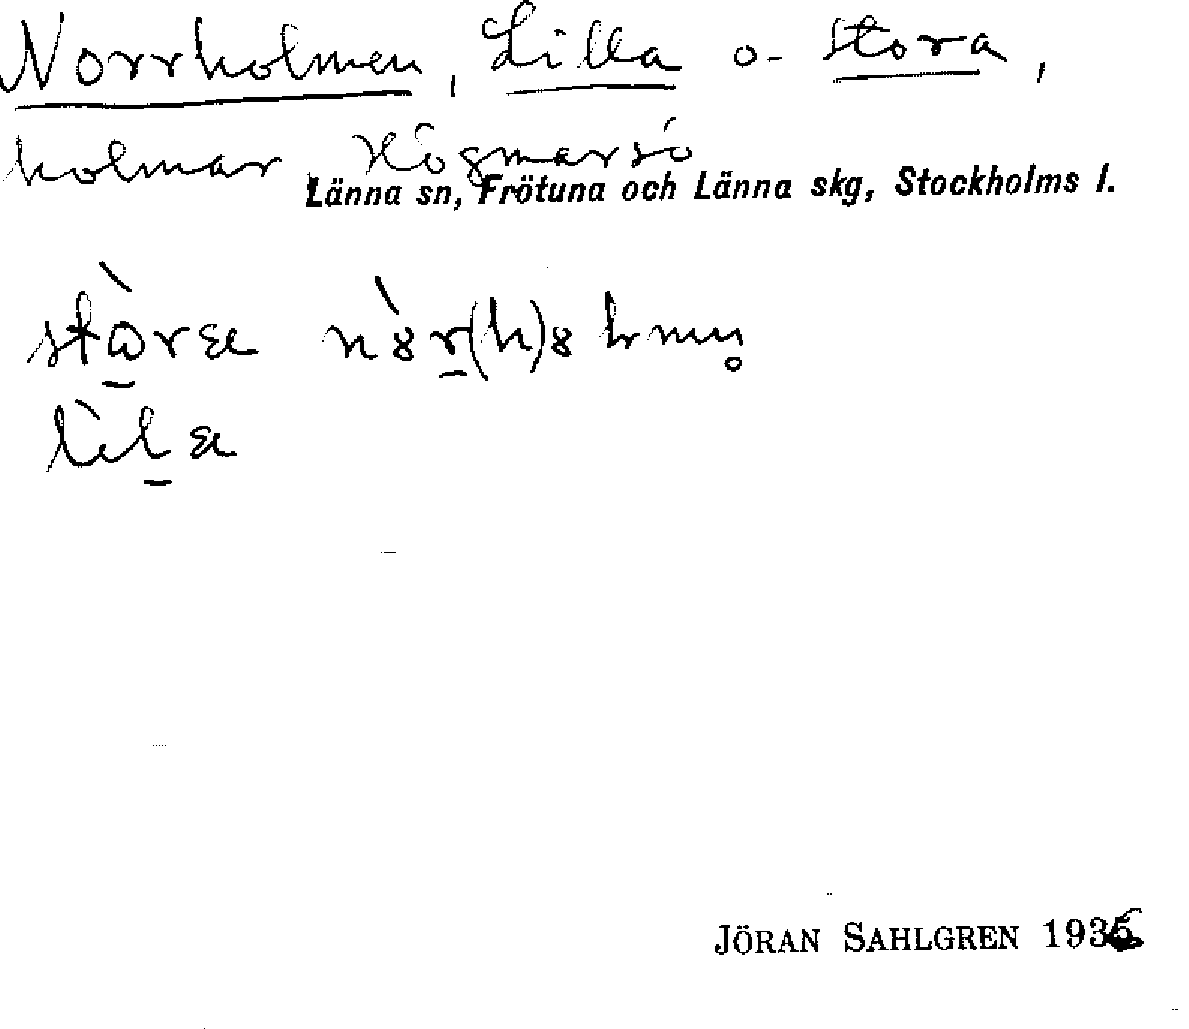 Norrholmen, Lilla o. Stora,
holmar, Högmarsö
Länna sn, Frötuna och Länna skg, Stockholms l.
JÖRAN SAHLGREN 1936